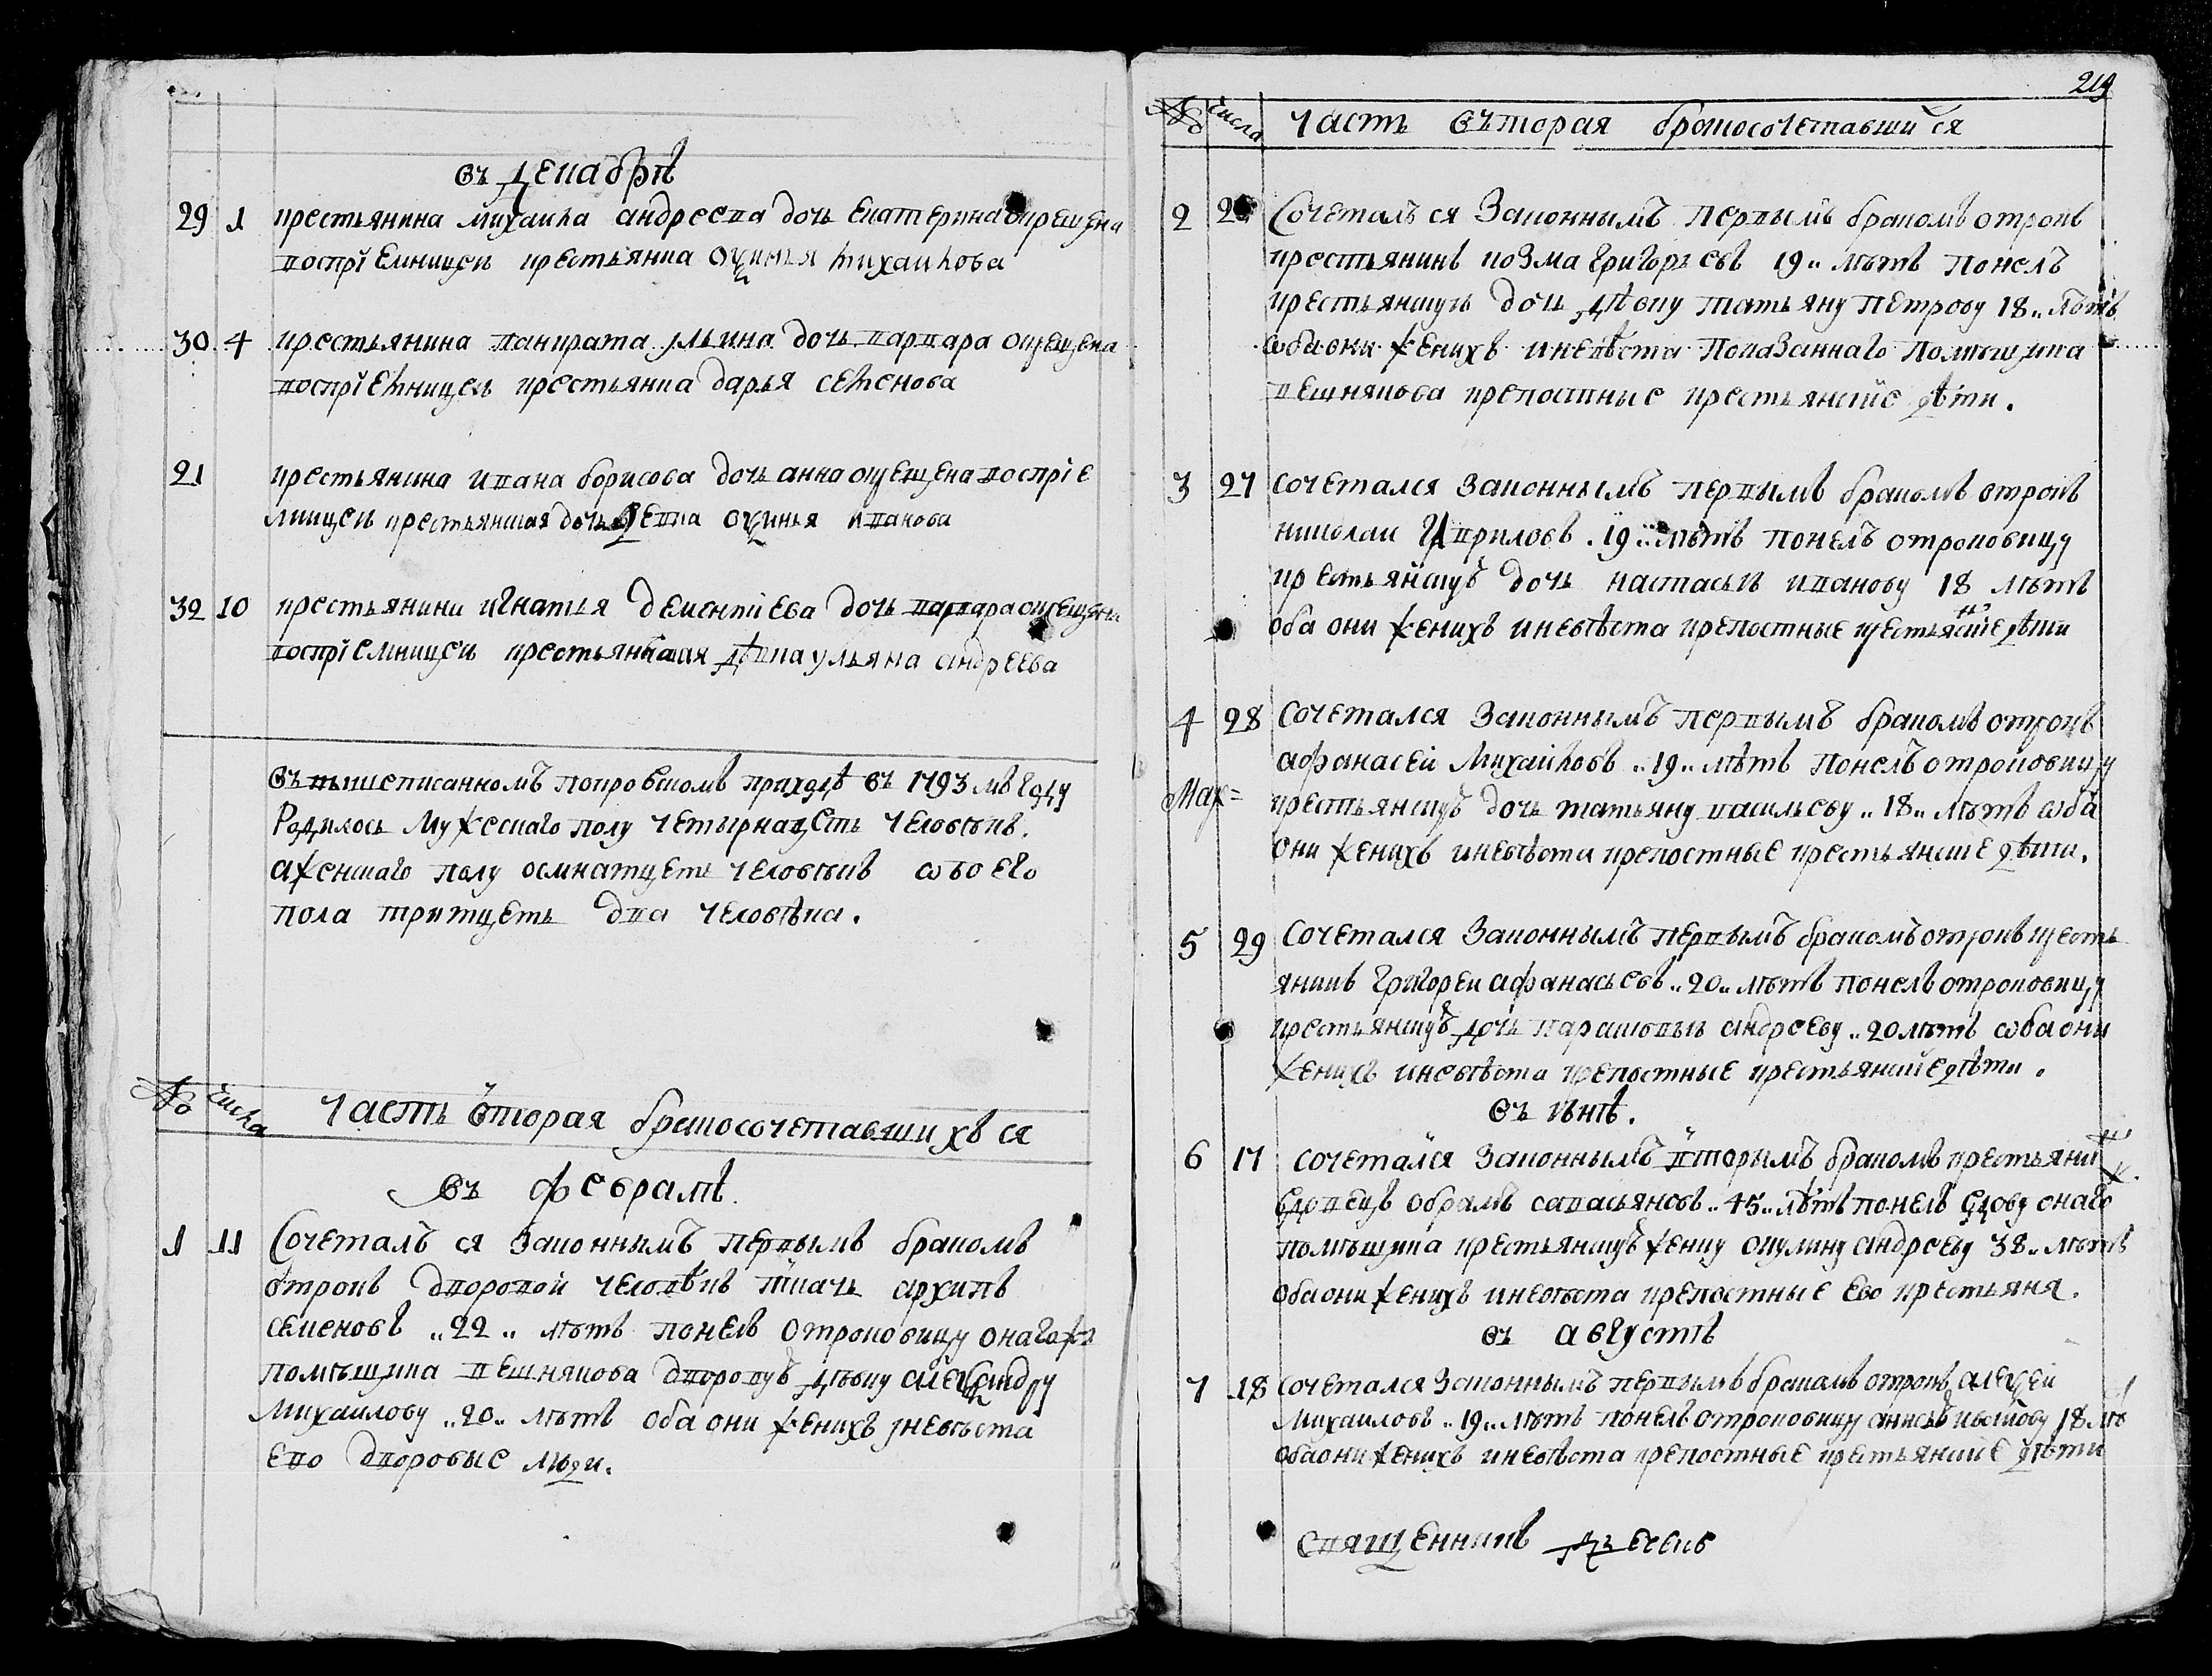 въ декабрѣ
29 1 крестьянина михаила андреева дочь екатерина окрещена
воспрiемницеи крестьянка оксинья михаилова
30 4 крестьянина панкрата ульина дочь варвара окрещена
воспрiемницеи крестьянка дарья семенова
21 крестьянина ивана борисова дочь анна окрещена воспрiе
мницеи крестьянская дочь девка оксинья иванова
32 10 крестьянини игнатья дементiева дочь варвара окрещена
воспрiемницеи крестьянская дѣвка ульяна андреева
въ вышеписанномъ покровскомъ приходѣ въ 1793 мъ году
Родилось мужескаго полу четырнадсеть человѣкъ.
а женскаго полу осмнатцеть человѣкъ ѡбоего
пола тритцеть два человѣка.
№ числа часть вторая бракосочетавшихъ ся
въ февралѣ
1 11 Сочеталъ ся законнымъ первымъ бракомъ
отрокъ дворовой человѣкъ ткачь архипъ
семеновъ „22„ лѣтъ понелъ отроковицу онагожъ
помѣщика вешнякова дворовую дѣвку александру
михаилову „20„ лѣтъ оба они женихъ уневѣста
ево дворовые люди.
219
№ числа часть въторая бракосочетавшийся
2 Сочеталъ ся законнымъ первымъ бракомъ отрокъ
крестьянинъ козма григорьевъ 19„ лѣтъ понелъ
крестьянскую дочь дѣвку татьяну петрову 18„ лѣтъ
ѡба они женихъ иневѣста показаннаго помѣщика
вешнякова крепостные крестьянские дѣти.
3 27 сочетался законнымъ первымъ бракомъ отрокъ
николаи гавриловъ „19„ лѣтъ понелъ отроковицу
крестьянскую дочь настасью иванову 18 лѣтъ
оба они женихъ иневѣста крепостные крестьянские дѣти
4 28 Сочетался законнымъ первымъ бракомъ отрокъ
афанасей михаиловъ „19„ лѣтъ понелъ отроковицу
крестьянскую дочь татьяну васильеву „18„ лѣтъ ѡба
они женихъ иневѣста крепостные крестьянские дѣти.
5 29 Сочетался законнымъ первымъ бракомъ отрокъ кресть
янинъ григореи афанасьевъ „20„ лѣтъ понелъ отроковицу
крестьянскую дочь парасковью андрееву „20 лѣтъ ѡба они
женихъ иневѣста крепостные крестьянские дѣти.
въ iюнѣ.
6 17 сочетался законнымъ вторымъ бракомъ крестьянинъ
вдовецъ обрамъ савасьяновъ „45„ лѣтъ понелъ вдову онаго
помѣщика крестьянскую женку окулину андрееву 38„ лѣтъ
оба они женихъ иневѣста крепостные ево крестьяня.
въ августѣ
7 18 сочетался законнымъ первымъ бракомъ отрокъ алексеи
михаиловъ „19„ лѣтъ понелъ отроковицу анисью 18 лѣ
оба они женихъ иневѣста крепостные крестьянские дѣти
священникъ